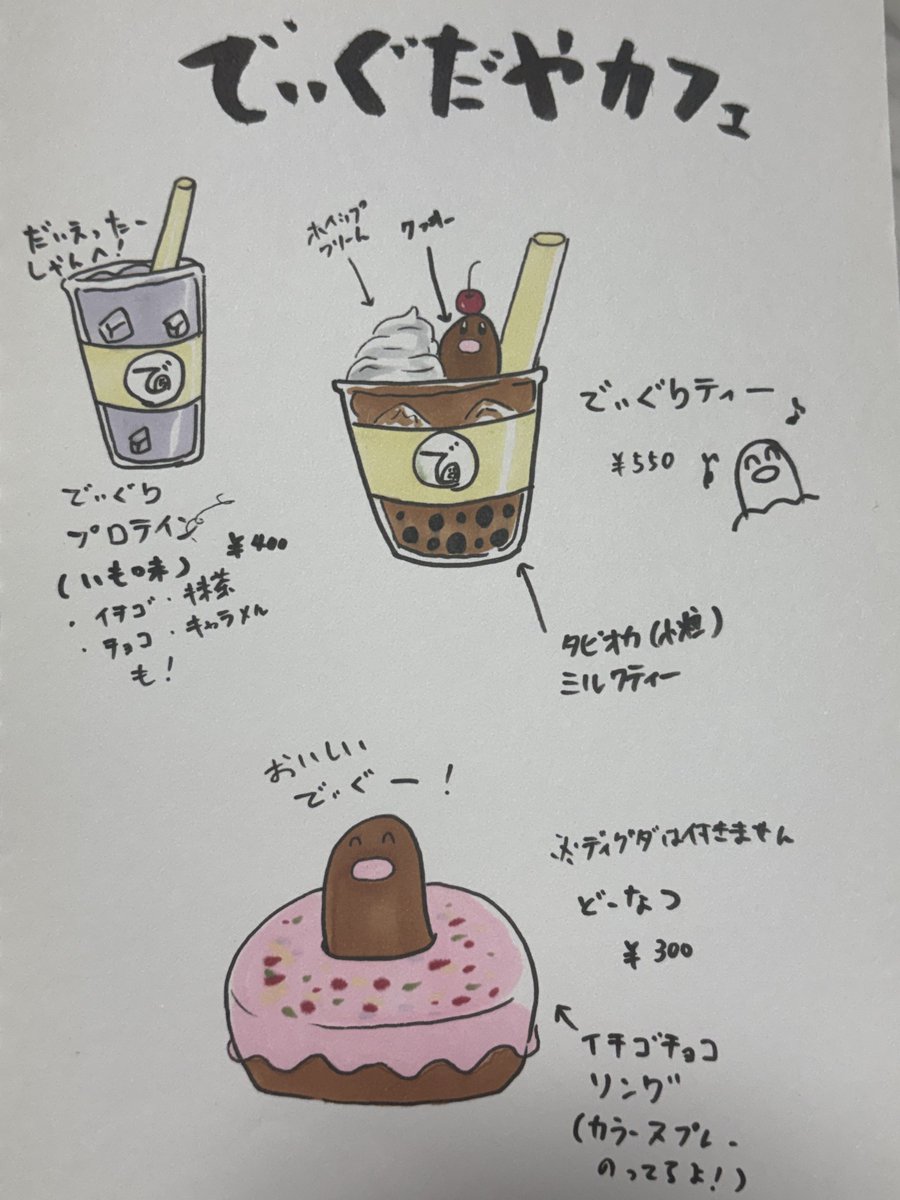 でぃぐだやカフェ
だいえったー
しゃんへ!
ホイップ
クリーム
クッキー
で
で
でぃぐりティー
¥550
でぃぐり
プロテイン
¥400
(いも味)
・イチゴ・抹茶
・チョコ・キャラメル
も!
タピオカ(小粒)
ミルクティー
おいしい
でぃぐー!
※ディグダは付きません
どーなつ
¥300
イチゴチョコ
リング
(カラースプレー
のってるよ!)